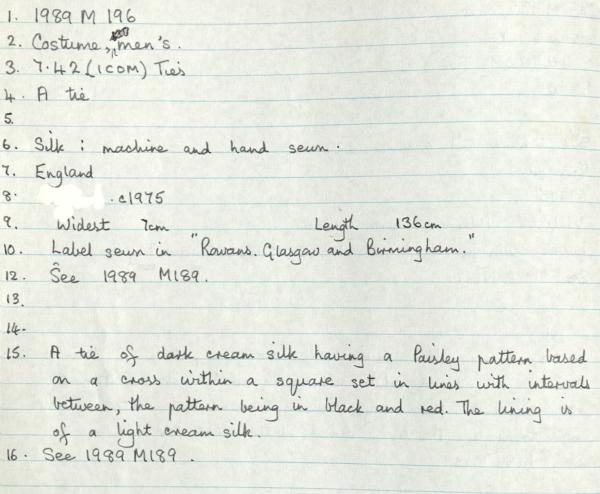 1. 1989 M 196
2. Costume, men's.
3. 7.42 (ICOM) Ties
4. A tie
5.
6. Silk : machine and hand sewn.
7. England
8. .c1975
9. Widest 7cm Length 136cm
10. Label sewn in "Rowans. Glasgow and Birmingham."
12. See 1989 M189.
13.
14.
15. A tie of dark cream silk having a Paisley pattern based
on a cross within a square set in lines with intervals
between, the pattern being in black and red. The lining is
of a light cream silk.
16. See 1989 M189.